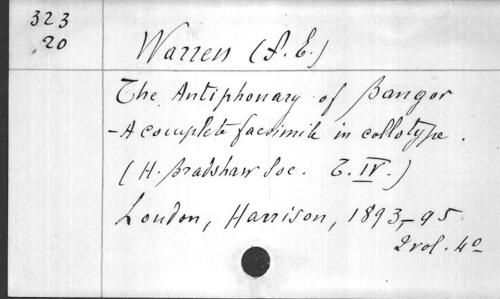 323
20
Warren (F. E.)
The Antiphonary of Bangor
- A complete facsimile in collotype.
(H. Bradshaw Soc. T. IV.)
London, Harrison, 1893-95
2 vol. 4º